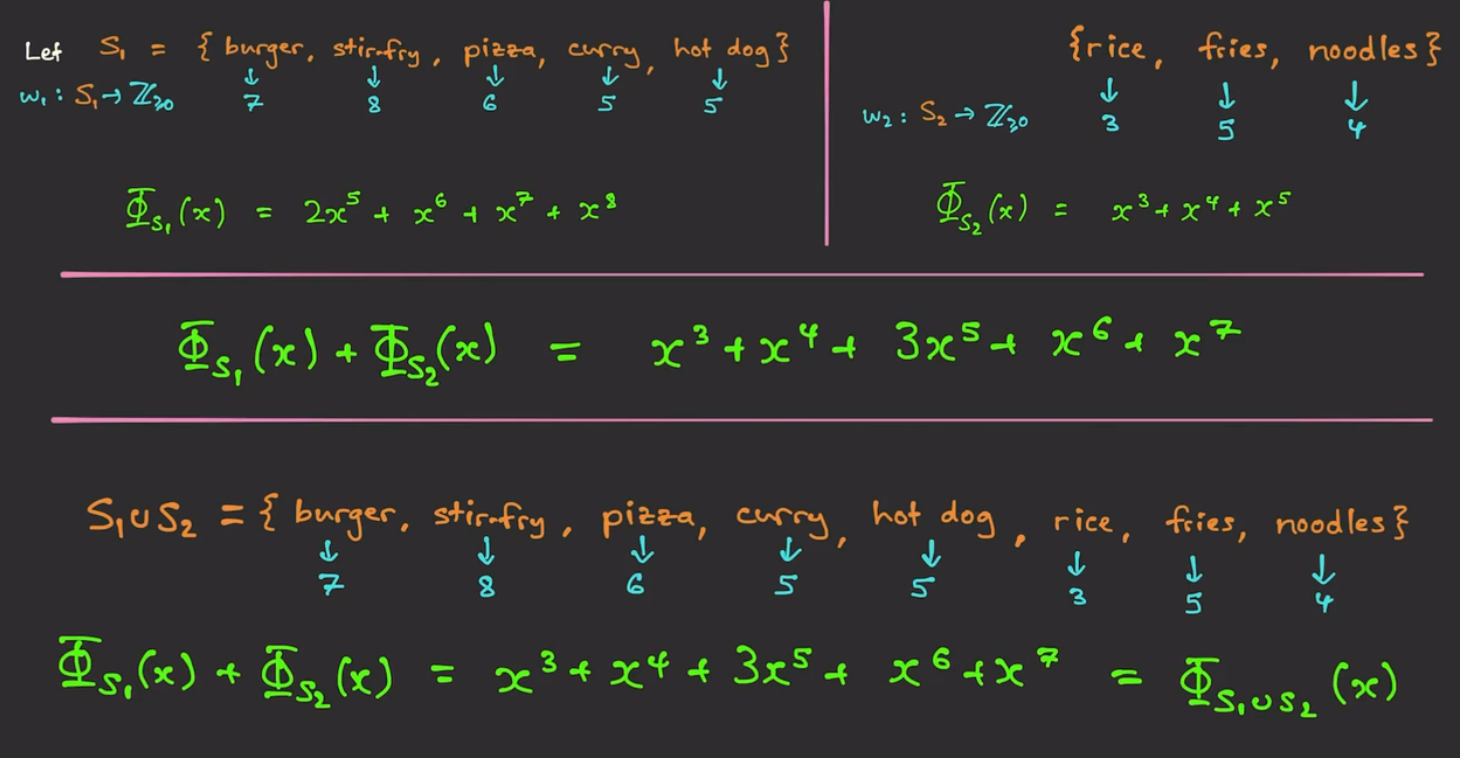 Let S₁ = { burger, stir-fry, pizza, curry, hot dog }
↓ ↓ ↓ ↓ ↓
w₁ : S₁ → ℤ≥0 7 8 6 5 5
Φ_S₁(x) = 2x⁵ + x⁶ + x⁷ + x⁸
{rice, fries, noodles}
↓ ↓ ↓
w₂ : S₂ → ℤ≥0 3 5 4
Φ_S₂(x) = x³ + x⁴ + x⁵
Φ_S₁(x) + Φ_S₂(x) = x³ + x⁴ + 3x⁵ + x⁶ + x⁷
S₁∪S₂ = { burger, stir-fry, pizza, curry, hot dog, rice, fries, noodles}
↓ ↓ ↓ ↓ ↓ ↓ ↓ ↓
7 8 6 5 5 3 5 4
Φ_S₁(x) + Φ_S₂(x) = x³ + x⁴ + 3x⁵ + x⁶ + x⁷ = Φ_S₁∪S₂(x)